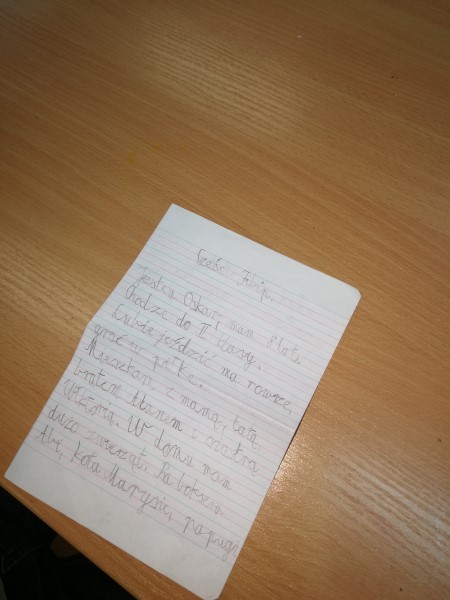 Cześć Filip.
Jestem Oskar, mam 8 lat.
Chodzę do II klasy.
Lubię jeździć na rowerze,
grać w piłkę.
Mieszkam z mamą, tatą,
bratem i siostrą
Wiktorią. W domu mam
dużo zwierząt. Psa boksera
kota Marysię, papugi